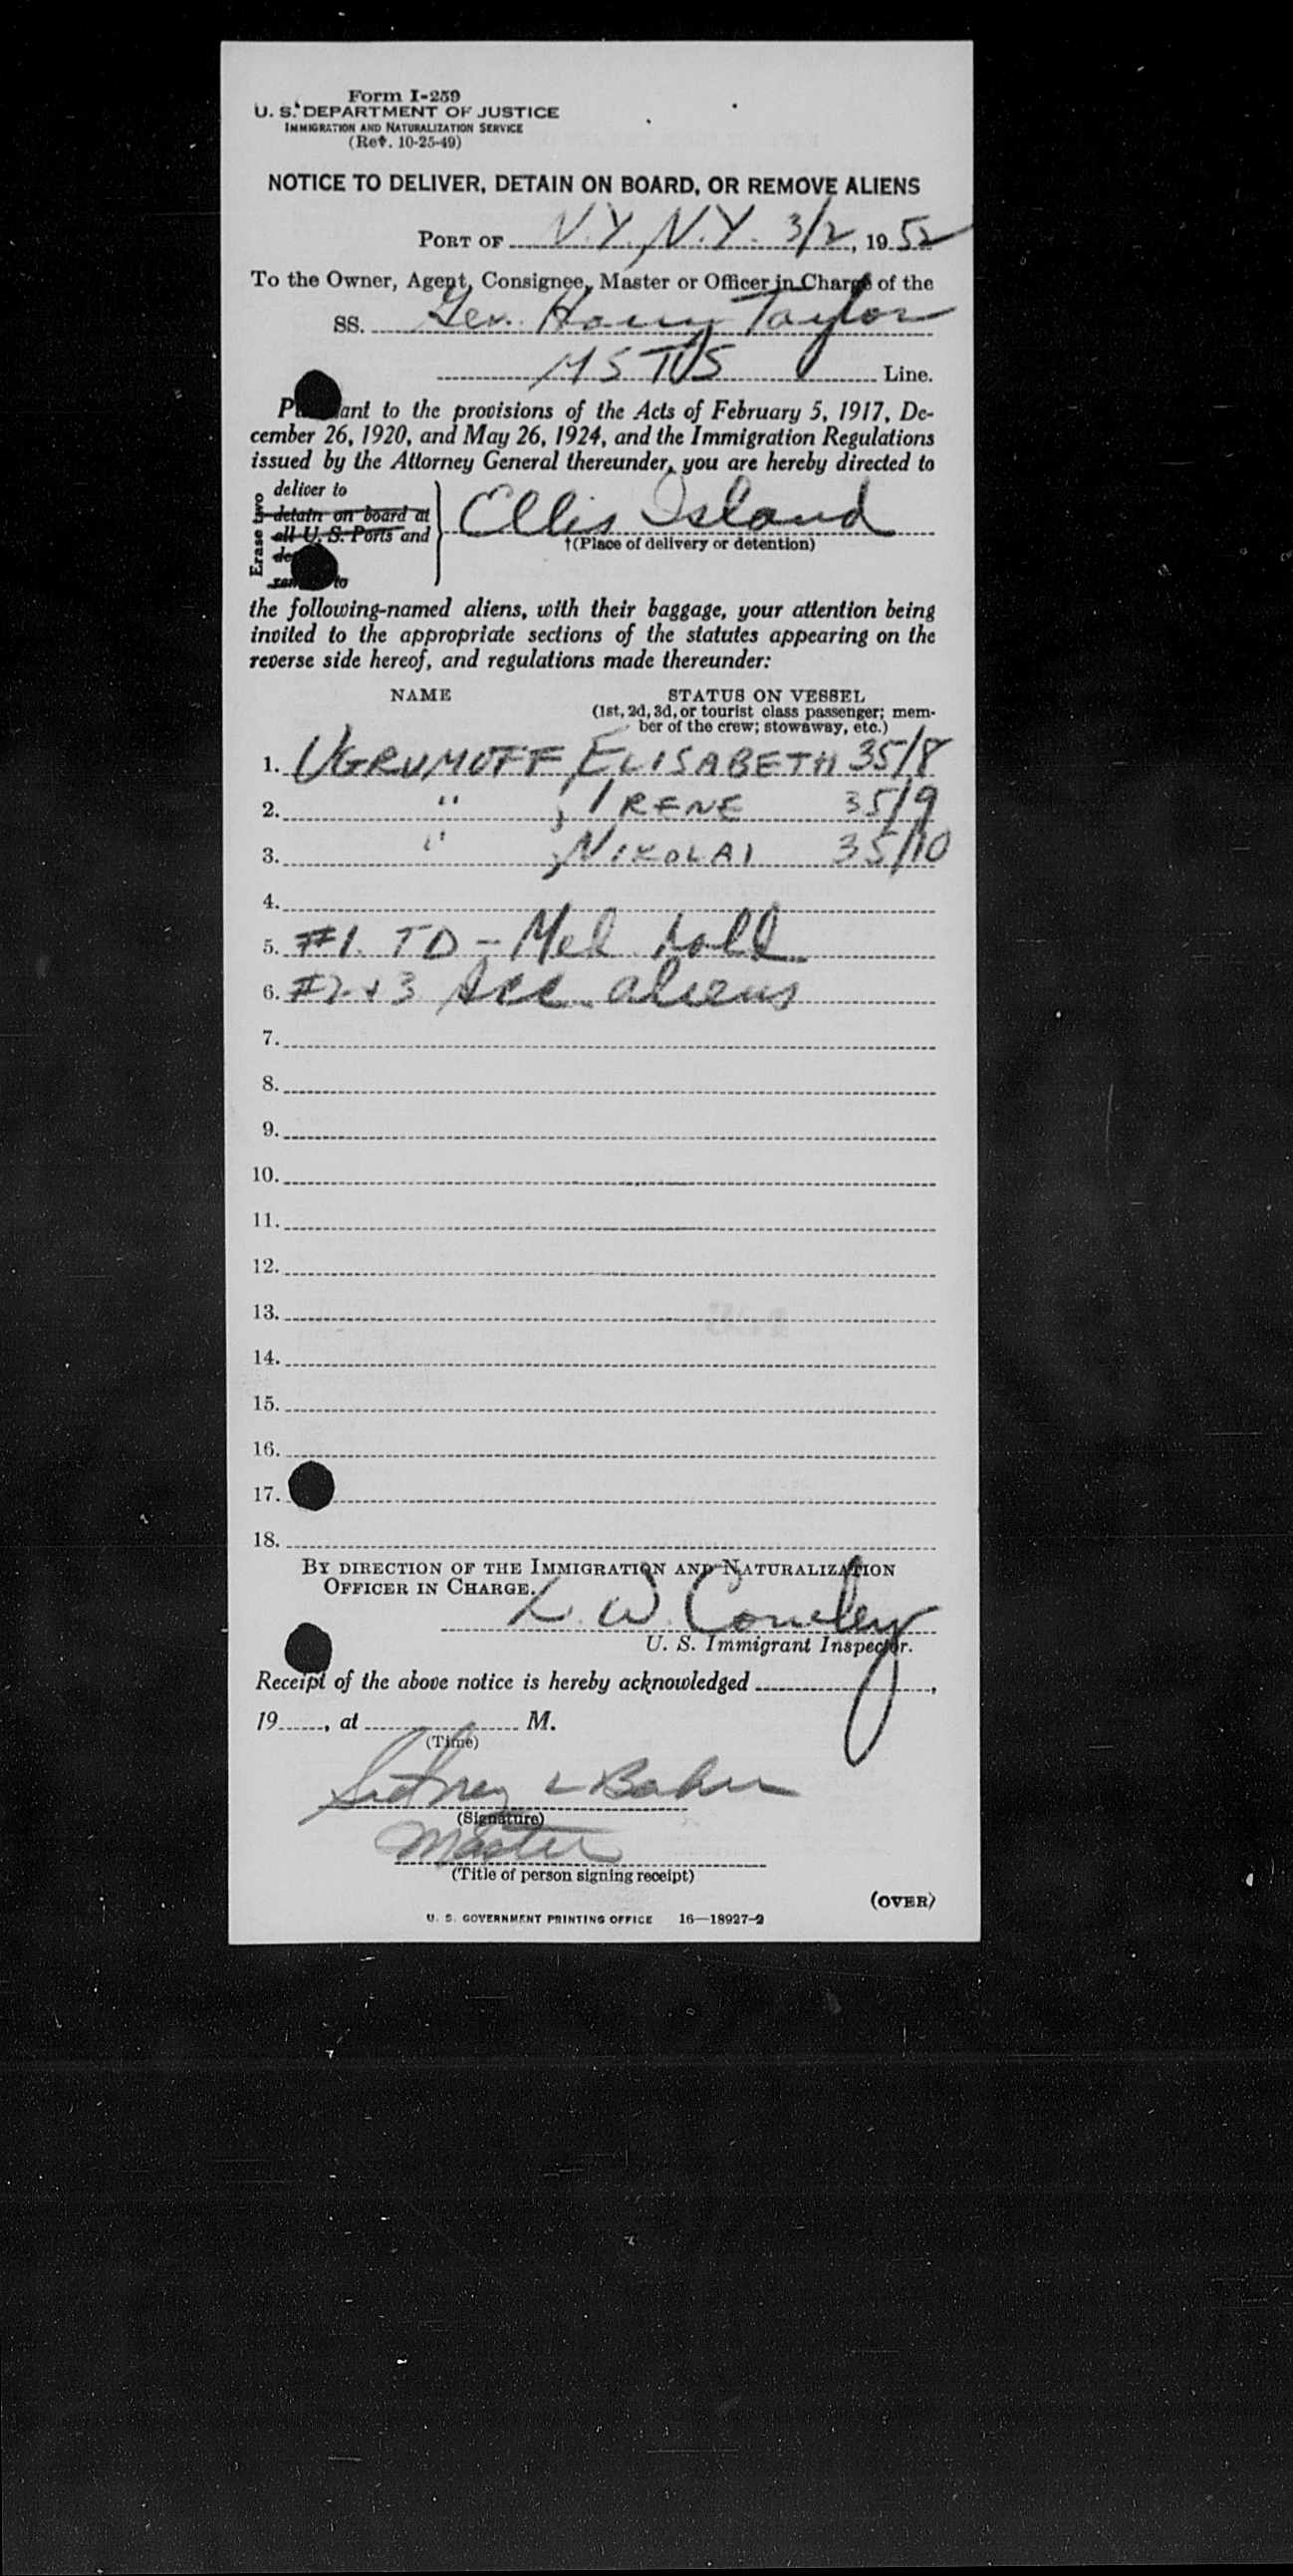 Form I-259
U. S. DEPARTMENT OF JUSTICE
IMMIGRATION AND NATURALIZATION SERVICE
(Rev. 10-25-49)
NOTICE TO DELIVER, DETAIN ON BOARD, OR REMOVE ALIENS
PORT OF N.Y., N.Y. 3/2, 1952
To the Owner, Agent, Consignee, Master or Officer in Charge of the
SS. Gen. Harry Taylor
MSTS Line.
ant to the provisions of the Acts of February 5, 1917, De-
cember 26, 1920, and May 26, 1924, and the Immigration Regulations
issued by the Attorney General thereunder, you are hereby directed to
Erase two
deliver to
detain on board at
all U. S. Ports and
to
Ellis Island
†(Place of delivery or detention)
the following-named aliens, with their baggage, your attention being
invited to the appropriate sections of the statutes appearing on the
reverse side hereof, and regulations made thereunder:
NAME STATUS ON VESSEL
(1st, 2d, 3d, or tourist class passenger; mem-
ber of the crew; stowaway, etc.)
1. UGRUMOFF, ELISABETH 35/8
2. " , IRENE 35/9
3. " , NIKOLAI 35/10
4.
5. #1. TD - Med. hold
6. #2+3 Acc. aliens
7.
8.
9.
10.
11.
12.
13.
14.
15.
16.
17.
18.
BY DIRECTION OF THE IMMIGRATION AND NATURALIZATION
OFFICER IN CHARGE.
L. W. Cowley
U. S. Immigrant Inspector.
Receipt of the above notice is hereby acknowledged ,
19 , at M.
(Time)
Sidney L
(Signature)
Master
(Title of person signing receipt)
(OVER)
U. S. GOVERNMENT PRINTING OFFICE 16—18927-2